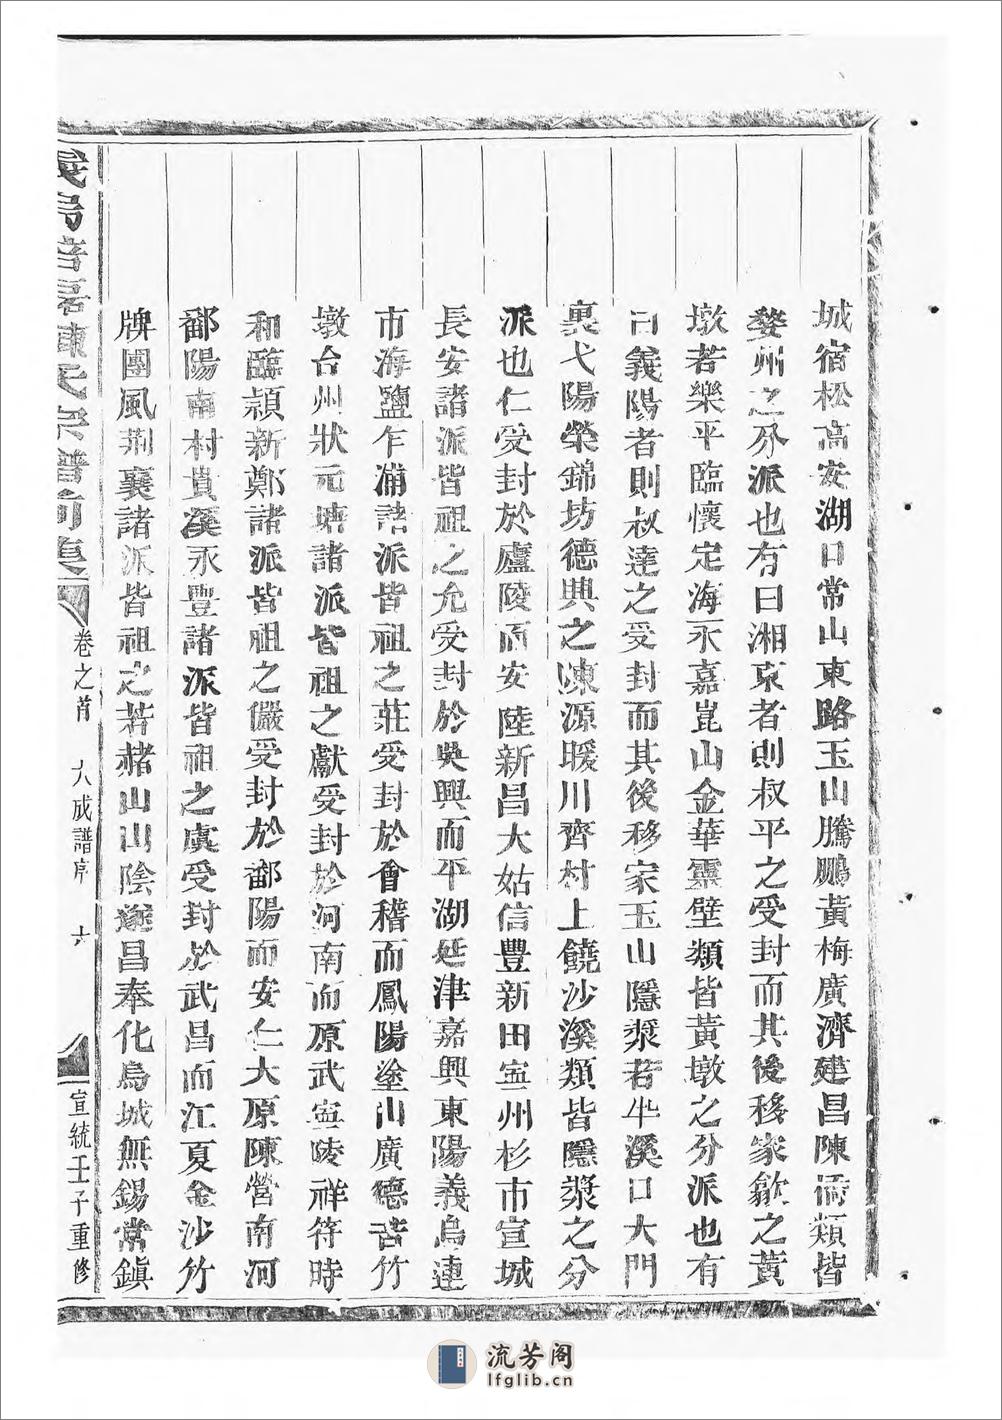 城宿松高安湖口常山東路玉山騰鵬黃梅廣濟建昌陳澝類皆
婺州之分派也有曰湘京者則叔平之受封而其後移家歙之黃
墩若樂平臨懷定海永嘉崑山金華靈壁類皆黃墩之分派也有
曰義陽者則叔達之受封而其後移家玉山隱漿若牛溪口大門
裏弋陽榮錦坊德興之陳源暖川齊村上饒沙溪類皆隱漿之分
派也仁受封於廬陵而安陸新昌大姑信豐新田寍州杉市宣城
長安諸派皆祖之允受封於吳興而平湖延津嘉興東陽義烏連
市海鹽乍浦諸派皆祖之莊受封於會稽而鳳陽塗山廣德苦竹
墩台州狀元塘諸派皆祖之獻受封於河南而原武寍陵祥符時
和臨潁新鄭諸派皆祖之儼受封於鄱陽而安仁大原陳營南河
鄱陽南村貴溪永豐諸派皆祖之虞受封於武昌而江夏金沙竹
牌團風荆襄諸派皆祖之若赭山山陰遂昌奉化烏城無錫常鎮
義烏 陳氏宗譜前集 卷之首 大成譜序 六 宣統壬子重修
流芳阁
lfglib.cn